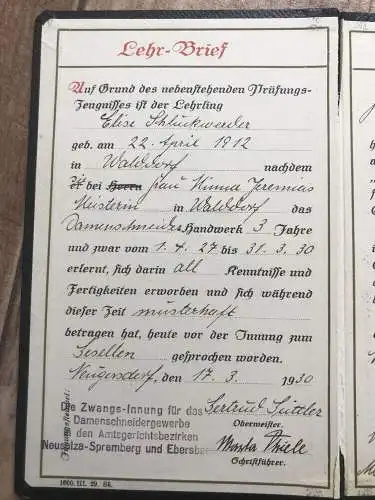 Lehr-Brief
Auf Grund des nebenstehenden Prüfungs-
Zeugnisses ist der Lehrling
Elise Schluckwerder
geb. am 22. April 1912
in Walddorf nachdem
sie er bei Herrn Frau Minna Jeremias
Meisterin in Walddorf das
Damenschneider Handwerk 3 Jahre
und zwar vom 1. 4. 27 bis 31. 3. 30
erlernt, sich darin all Kenntnisse und
Fertigkeiten erworben und sich während
dieser Zeit musterhaft
betragen hat, heute vor der Innung zum
Gesellen gesprochen worden.
Neugersdorf, den 17. 3. 1930
Die Zwangs-Innung für das Gertrud
Damenschneidergewerbe Obermeister.
in den Amtsgerichtsbezirken Martha Thiele
Neusalza-Spremberg und Ebersbach Schriftführer.
Innungsstempel:
1600. III. 29. Sk.